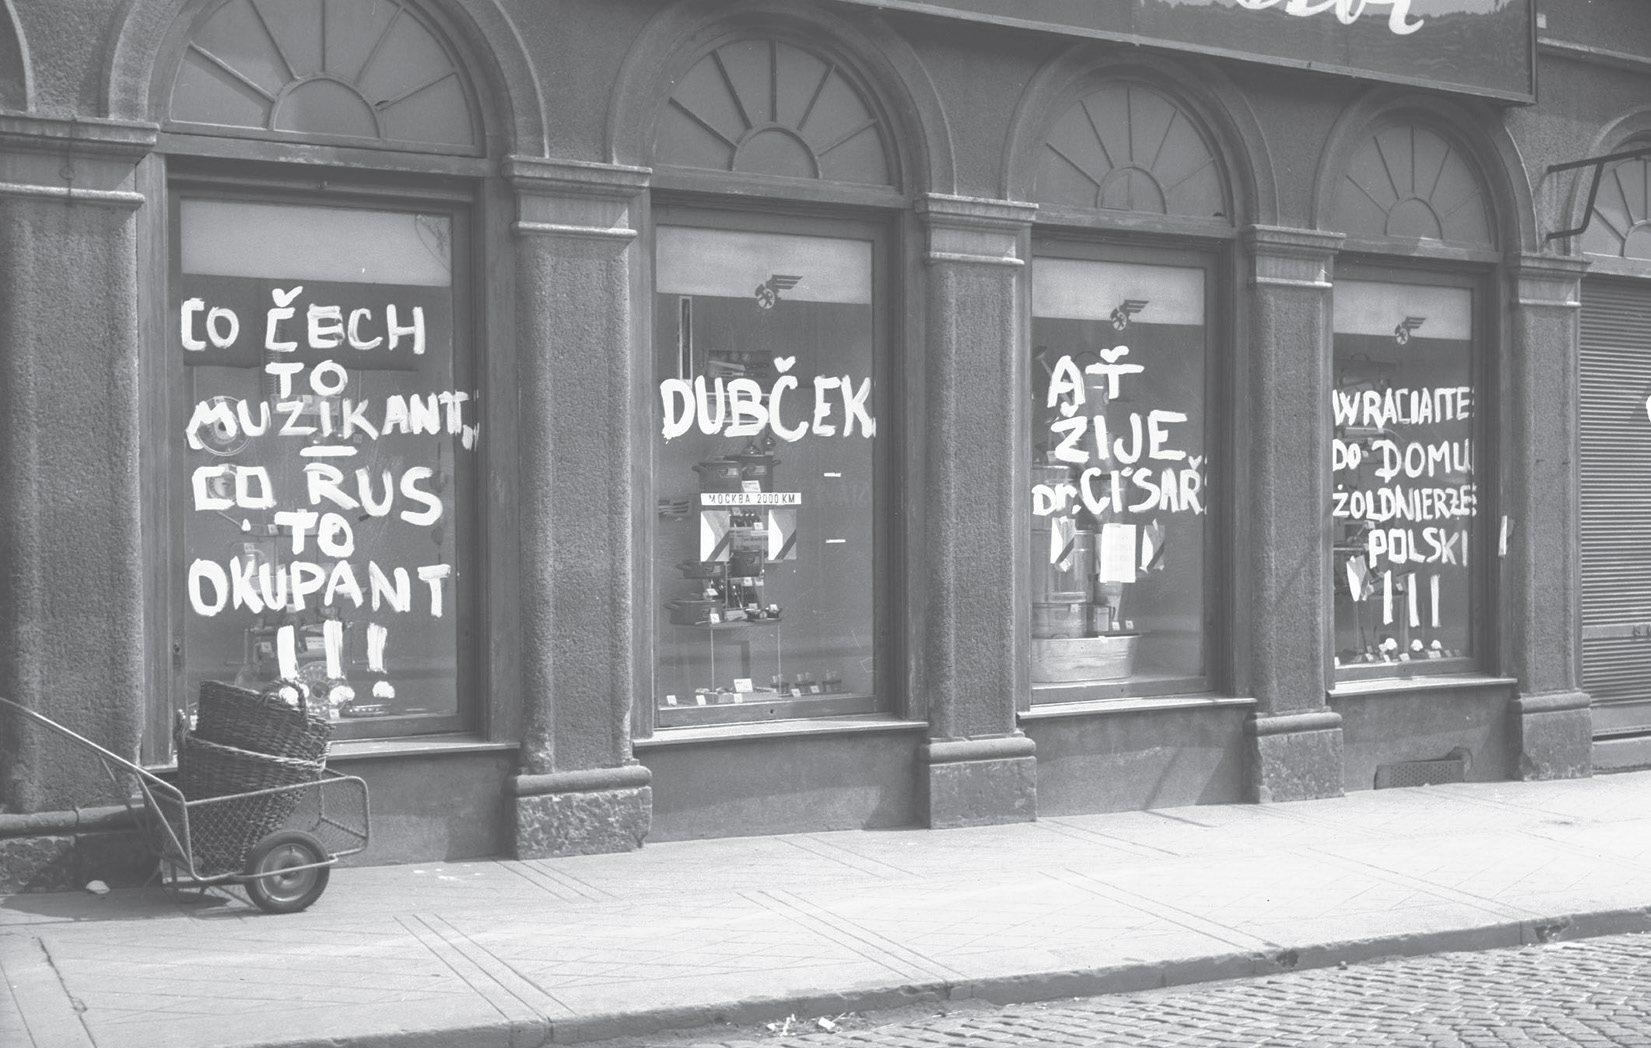 CO ČECH
TO
MUZIKANT,
–
CO RUS
TO
OKUPANT
!!!
DUBČEK
МОСКВА 2000 KM
AŤ
ŽIJE
Dr. CÍSAŘ
WRACIAITE
DO DOMU
ŻOLDNIERZE
POLSKI
!!!